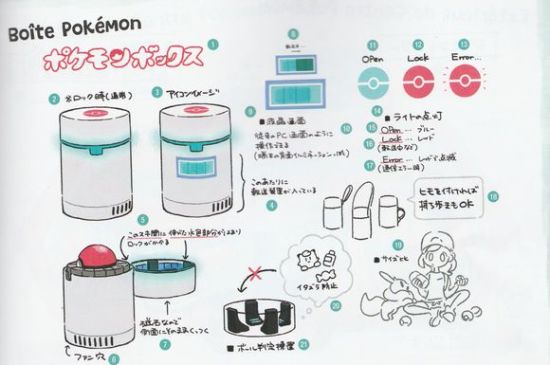 Boîte Pokémon
ポケモンボックス
1
2
※ロック時(通常)
3
アイコンイメージ
8
転送中…
9
■液晶画面
10
従来のPC画面のように
操作できる
11
OPen
12
Lock
13
Error…
14
■ライトの点灯
15
OPen … ブルー
16
Lock … レッド
(転送中など)
17
Error … レッド点滅
(通信エラー時)
4
このあたりに
転送装置が入っている
5
このスキ間に
ロックがかかる
6
ファン穴
7
磁石なので
側面にそのままくっつく
18
ヒモを付ければ
持ち歩きもOK
19
■サイズ比
20
イタズラ防止
21
■ボール判定装置